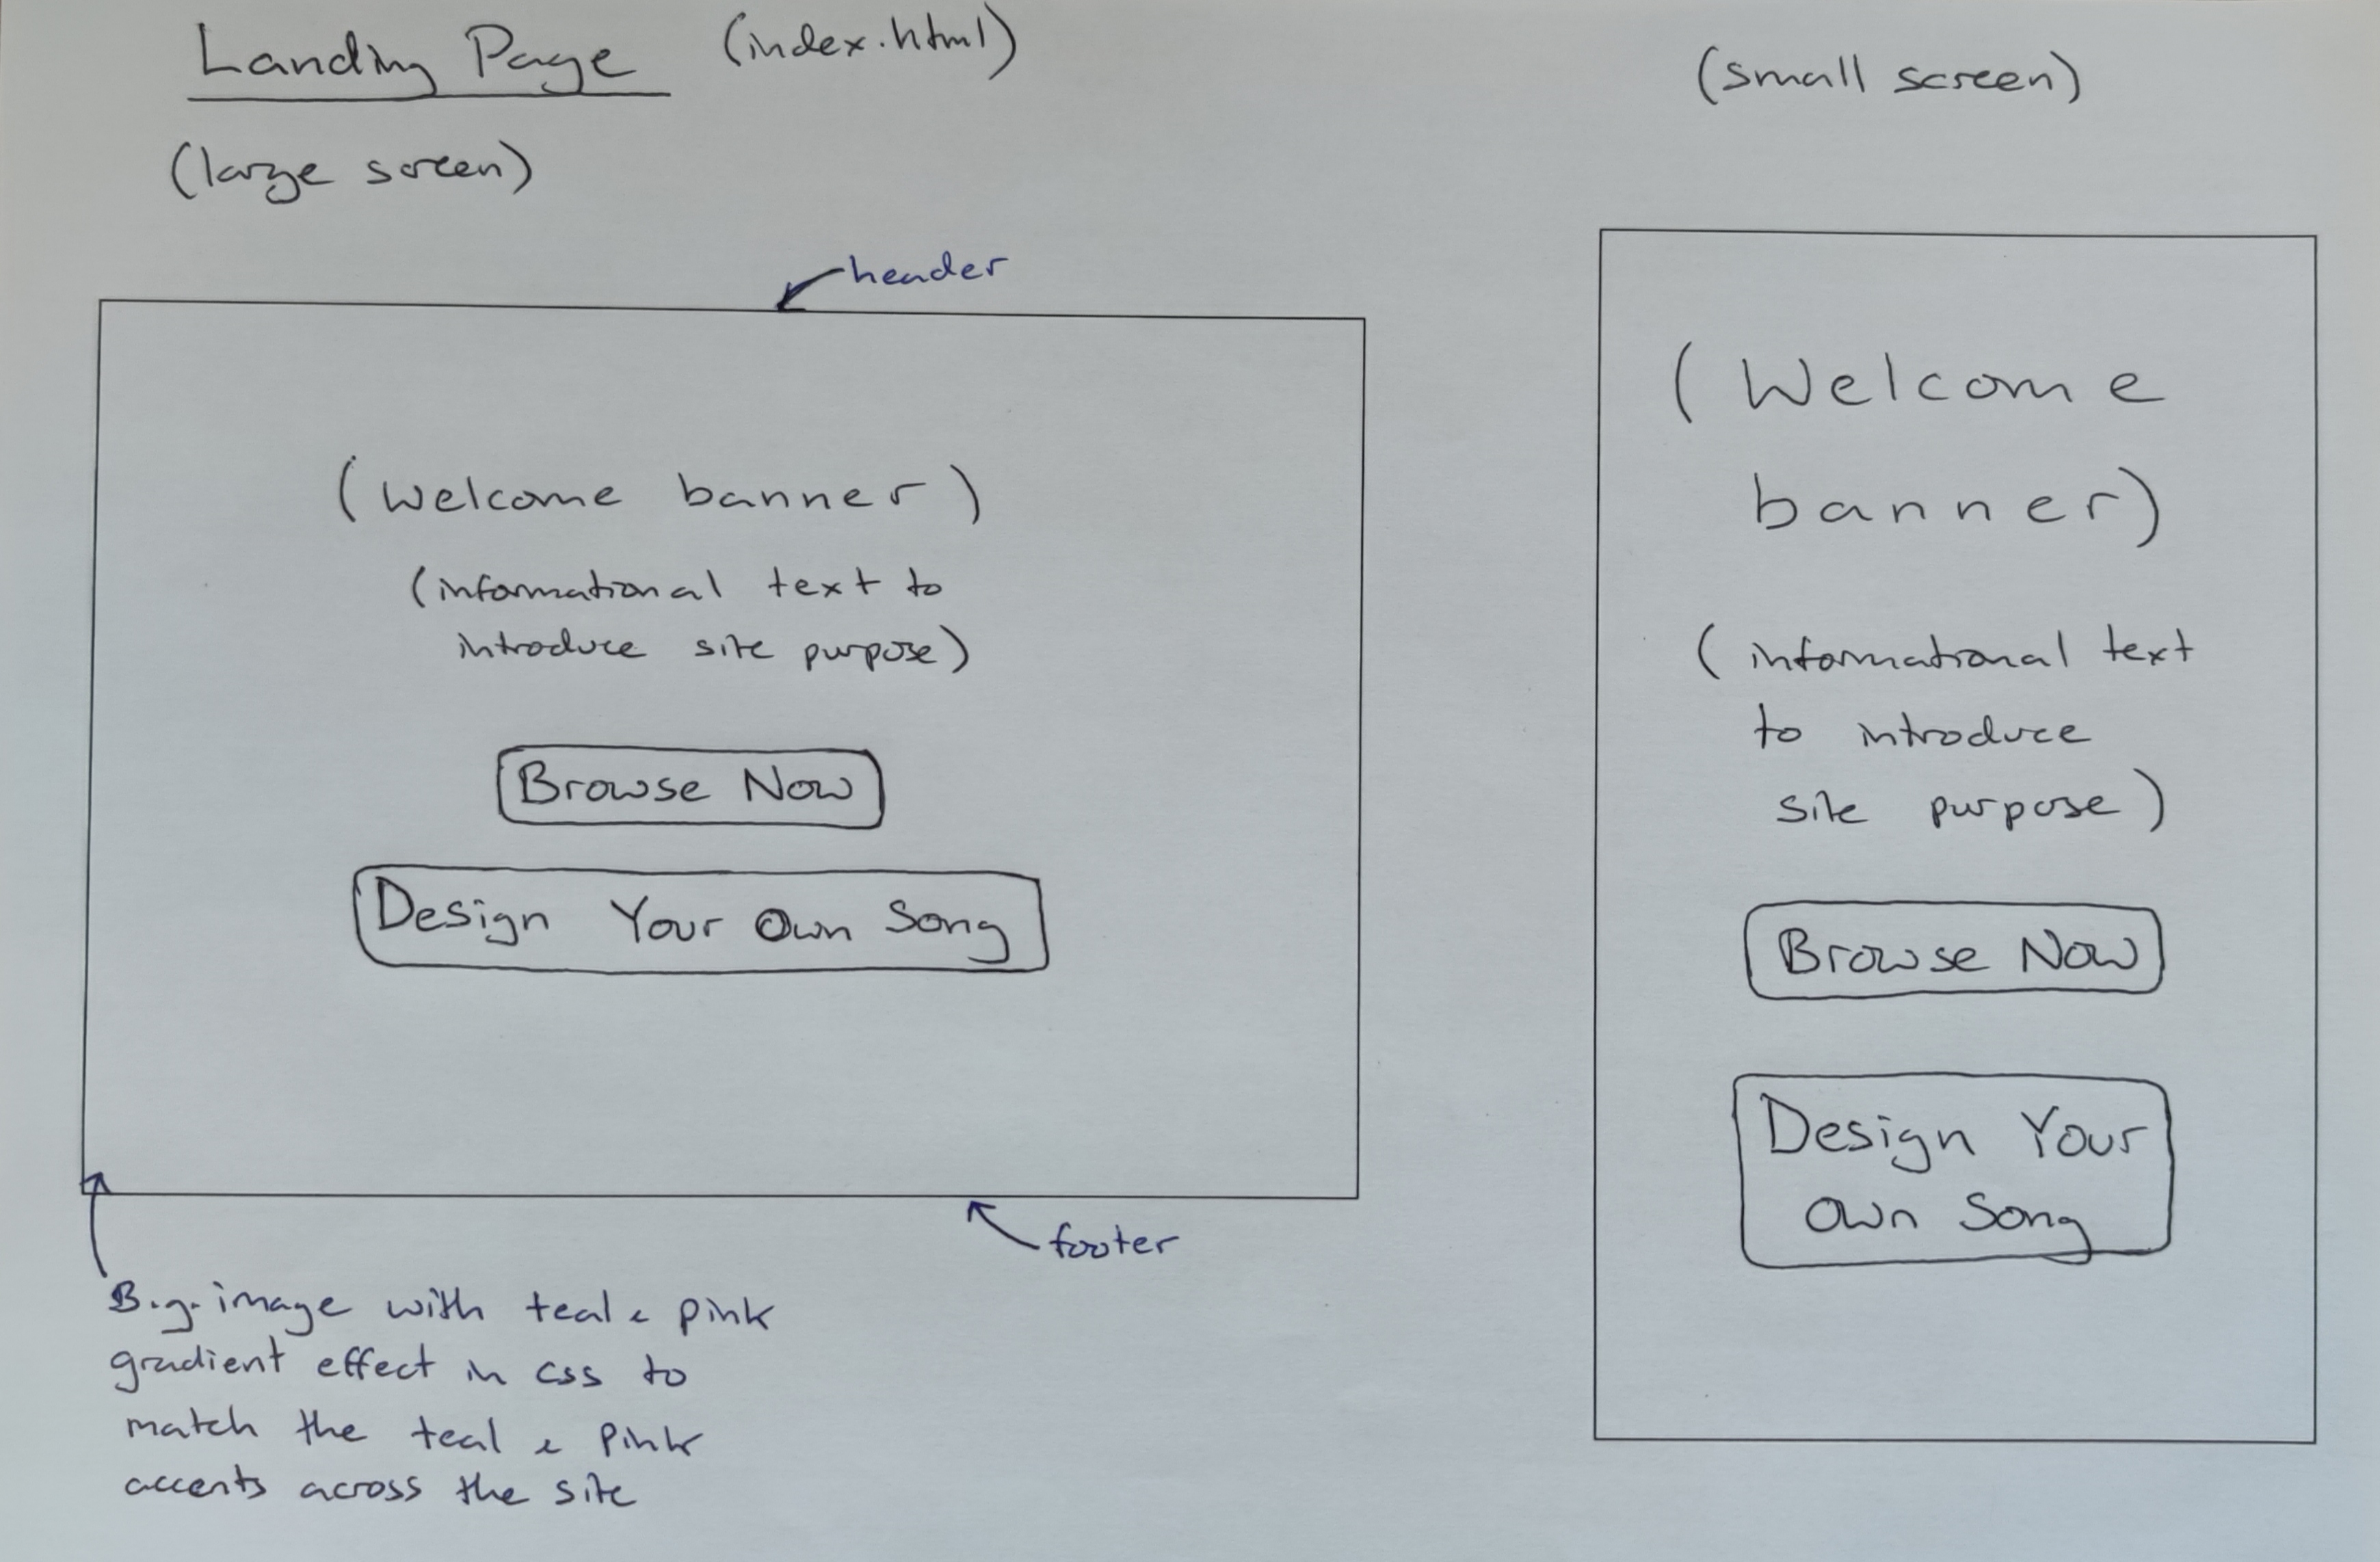 Landing Page (index.html)
(large screen)
header
(Welcome banner)
(informational text to
introduce site purpose)
Browse Now
Design Your Own Song
footer
B.g. image with teal & pink
gradient effect in css to
match the teal & pink
accents across the site
(small screen)
(Welcome
banner)
(informational text
to introduce
site purpose)
Browse Now
Design Your
Own Song